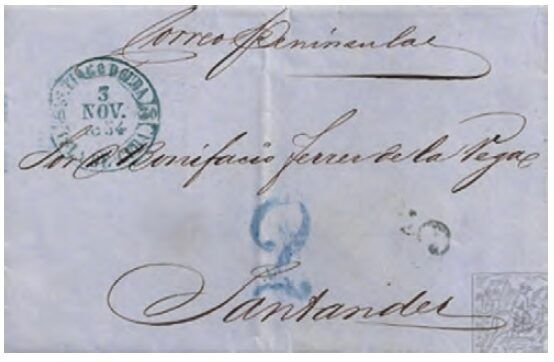 Correo Peninsular
3
NOV.
1854
Sor. Dn. Bonifacio Ferrer de la Vega
2
Santander